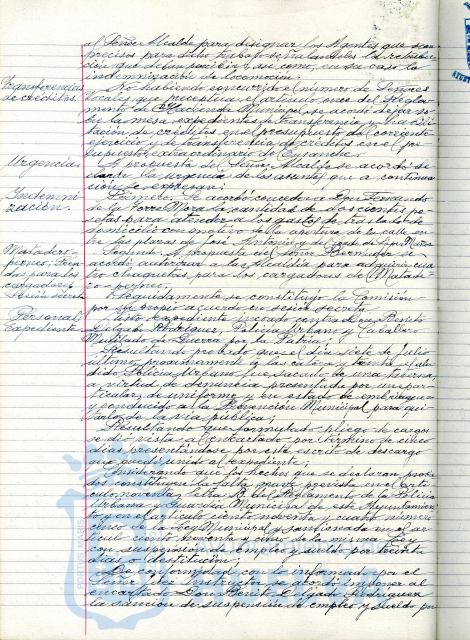 al Señor Alcalde para designar los Agentes que sean
precisos para dicho trabajo señalandoles la retribu-
ción que deban percibir, así como, en su caso la
indemnización de locomoción.
Transferencias
de créditos
No habiendo concurrido el número de Señores
Vocales que preceptua el artículo once del Regla-
mento de Hacienda Municipal, se acordó dejar so-
bre la mesa expedientes de transferencia y habili-
tación de créditos en el presupuesto del corriente
ejercicio y de transferencia de créditos en el pre-
supuesto extraordinario de Ensanche.
Urgencias
A propuesta del Señor Alcalde se acordó de-
clarar la urgencia de los asuntos que a continua-
ción se expresan:
Indemni-
zación
Primero. Se acordó conceder a Don Fernando
de la Torre Mora la cantidad de doscientas pe-
setas para atender a los gastos de traslado de
domicilio con motivo de la apertura de la calle en-
tre las plazas de José Antonio y del
Matadero-
para los
cargadores
Segundo. A propuesta del Señor Bermudez se
acordó autorizar a la Alcaldía para adquirir cua-
tro chaquetas para los cargadores de Matade-
ro
Sesión secreta
Seguidamente se constituyó la Comisión
por propio acuerdo en sesión secreta.
Personal
Expediente
Visto expediente incoado contra Don Benito
Delgado Rodríguez, Policía Urbano y Caballero
Mutilado de Guerra por la Patria;
Resultando probado que el día siete de Julio
último, proximamente a las catorce y treinta, el alu-
dido Policía Urbano fue sacado de una taberna,
a virtud de denuncia presentada por un par-
ticular, de uniforme y en estado de embriaguez
y conducido a la Prevención Municipal para qui-
tarlo de la vía pública;
Resultando que formulado pliego de cargos
se dió vista al encartado por término de cinco
días presentándose por este escrito de descargo
que quedó unido al expediente;
Considerando que los hechos que se declaran proba-
dos constituyen la falta grave prevista en el artí-
culo noventa, letra B. del Reglamento de la Policía
Urbana o Guardia Municipal de este Ayuntamien-
to y en el artículo ciento noventa y cuatro número
cinco de la Ley Municipal y sancionada en el ar-
tículo ciento noventa y cinco de la misma Ley
con suspensión de empleo y sueldo por treinta
días o destitución;
De conformidad con lo informado por el
Señor Juez Instructor se acordó imponer al
encartado Don Benito Delgado Rodríguez
la sanción de suspensión de empleo y sueldo por
PORTUS MAGIS